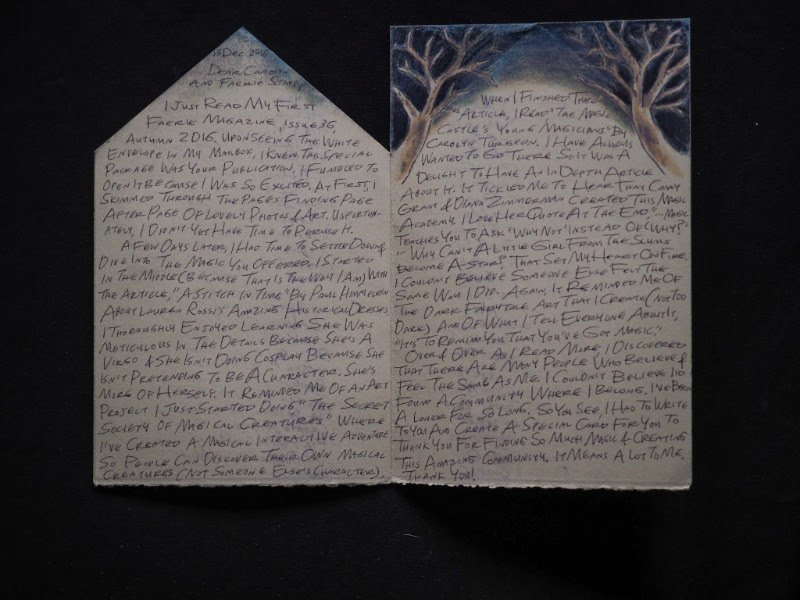 13 Dec 2016
Dear Carolyn
And Faerie Staff,
I Just Read My First
Faerie Magazine, Issue 36,
Autumn 2016. Upon Seeing The White
Envelope In My Mailbox, I Knew The Special
Package Was Your Publication. I Fumbled To
Open It Because I Was So Excited. At First, I
Skimmed Through The Pages Finding Page
After Page Of Lovely Photos & Art. Unfortun-
ately, I Didn't Yet Have Time To Peruse It.
A Few Days Later, I Had Time To Settle Down &
Dive Into The Magic You Offered. I Started
In The Middle (Because That Is The Way I Am) With
The Article, "A Stitch In Time" By Paul
About Lauren Rossi's Amazing Historical Dresses.
I Thoroughly Enjoyed Learning She Was
Meticulous In The Details Because She's A
Virgo & She Isn't Doing Cosplay Because She
Isn't Pretending To Be A Character. She's
More Of Herself. It Reminded Me Of An Art
Project I Just Started Doing "The Secret
Society Of Magical Creatures" Where
I've Created A Magical Interactive Adventure
So People Can Discover Their Own Magical
Creatures (Not Someone Else's Character).
When I Finished That
Article, I Read "The Magic
Castle's Young Magicians" By
Carolyn Turgeon. I Have Always
Wanted To Go There So It Was A
Delight To Have An In Depth Article
About It. It Tickled Me To Hear That Cary
Grant & Diana Zimmerman Created This Magic
Academy. I Love Her Quote At The End, "...Magic
Teaches You To Ask 'Why Not' Instead Of 'Why?'
Why Can't A Little Girl From The Slums
Become A Star?" That Set My Heart On Fire.
I Couldn't Believe Someone Else Felt The
Same Way I Did. Again, It Reminded Me Of
The Dark Fairytale Art That I Create (Not Too
Dark) And Of What I Tell Everyone About It,
"It's To Remind You That You've Got Magic."
Over & Over As I Read More I Discovered
That There Are Many People Who Believe &
Feel The Same As Me. I Couldn't Believe I'd
Found A Community Where I Belong. I've Been
A Loner For So Long. So You See, I Had To Write
To You And Create A Special Card For You To
Thank You For Finding So Much Magic & Creating
This Amazing Community. It Means A Lot To Me.
Thank You!